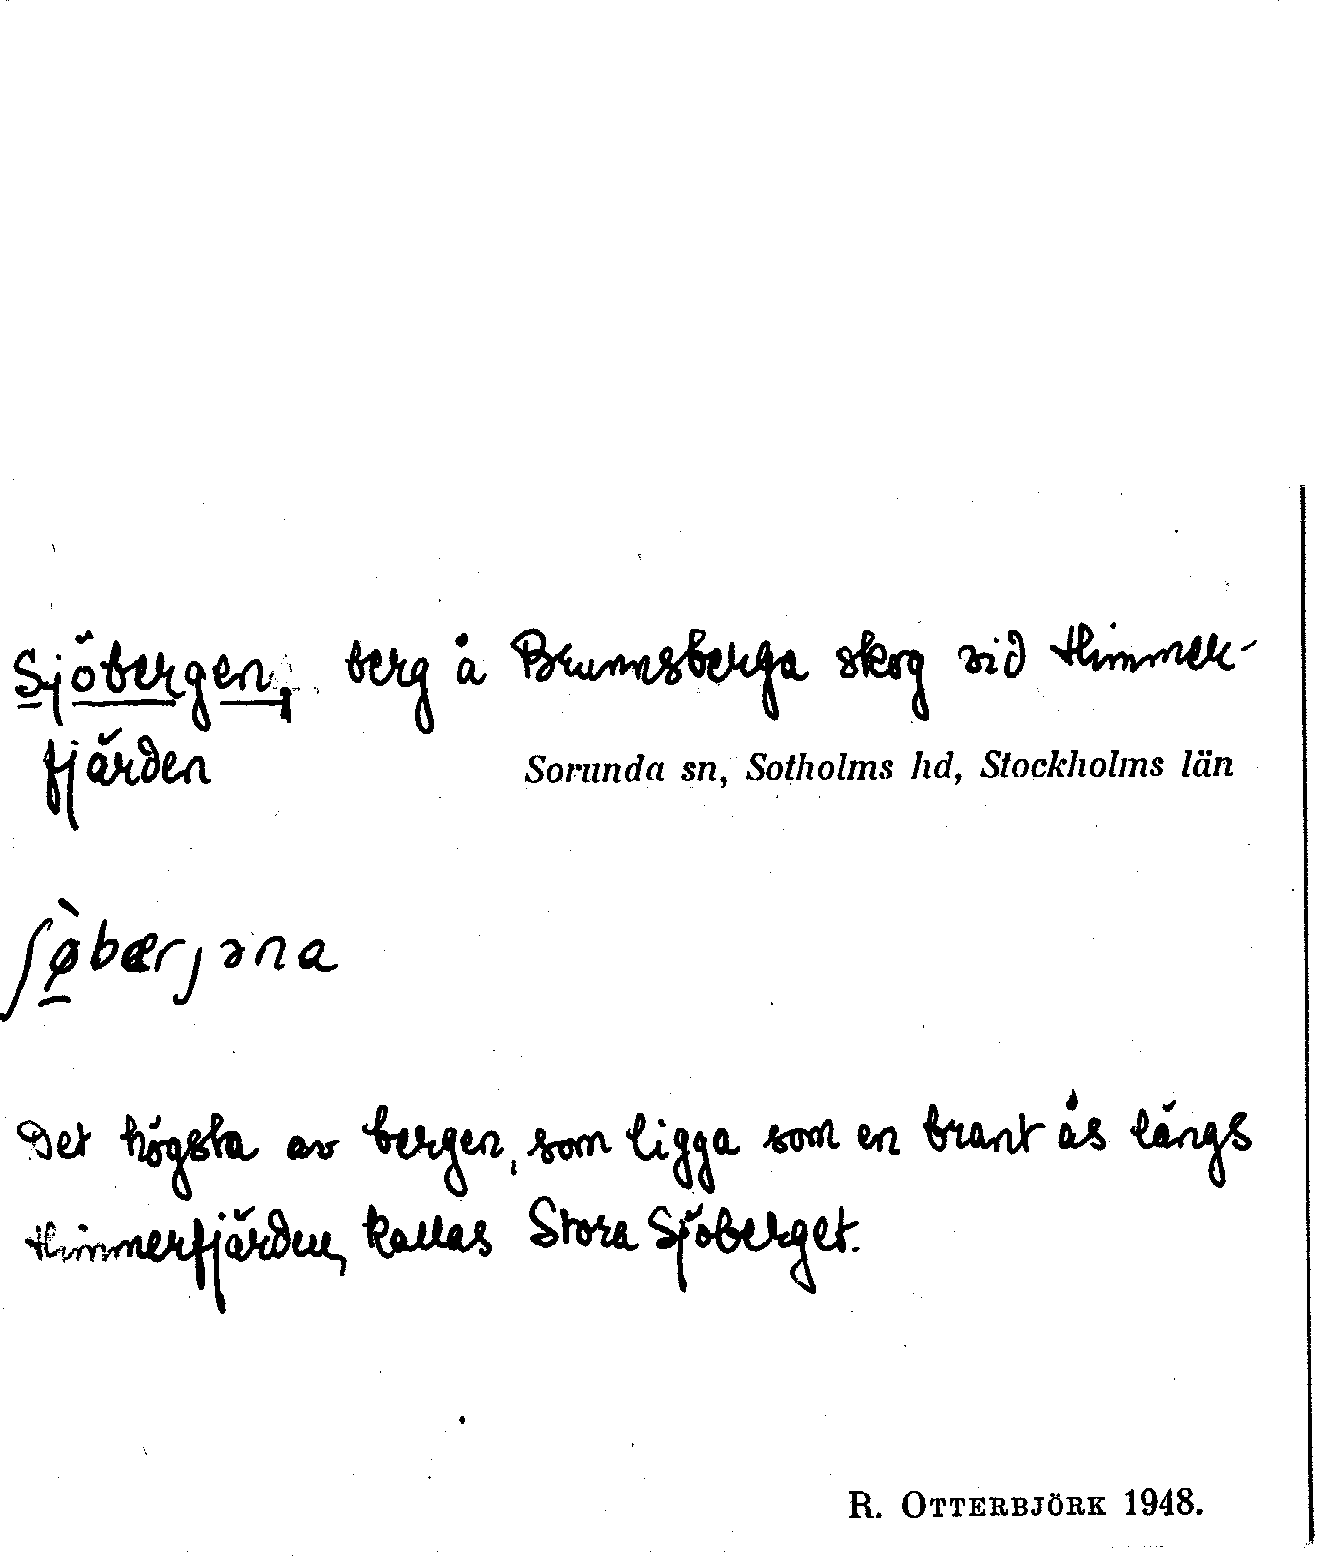 Sjöbergen, berg å Brunnsberga skog vid Himmer-
fjärden
Sorunda sn, Sotholms hd, Stockholms län
ʃø̠̀bærjəna
Det högsta av bergen, som ligga som en brant ås längs
Himmerfjärden, kallas Stora Sjöberget.
R. OTTERBJÖRK 1948.